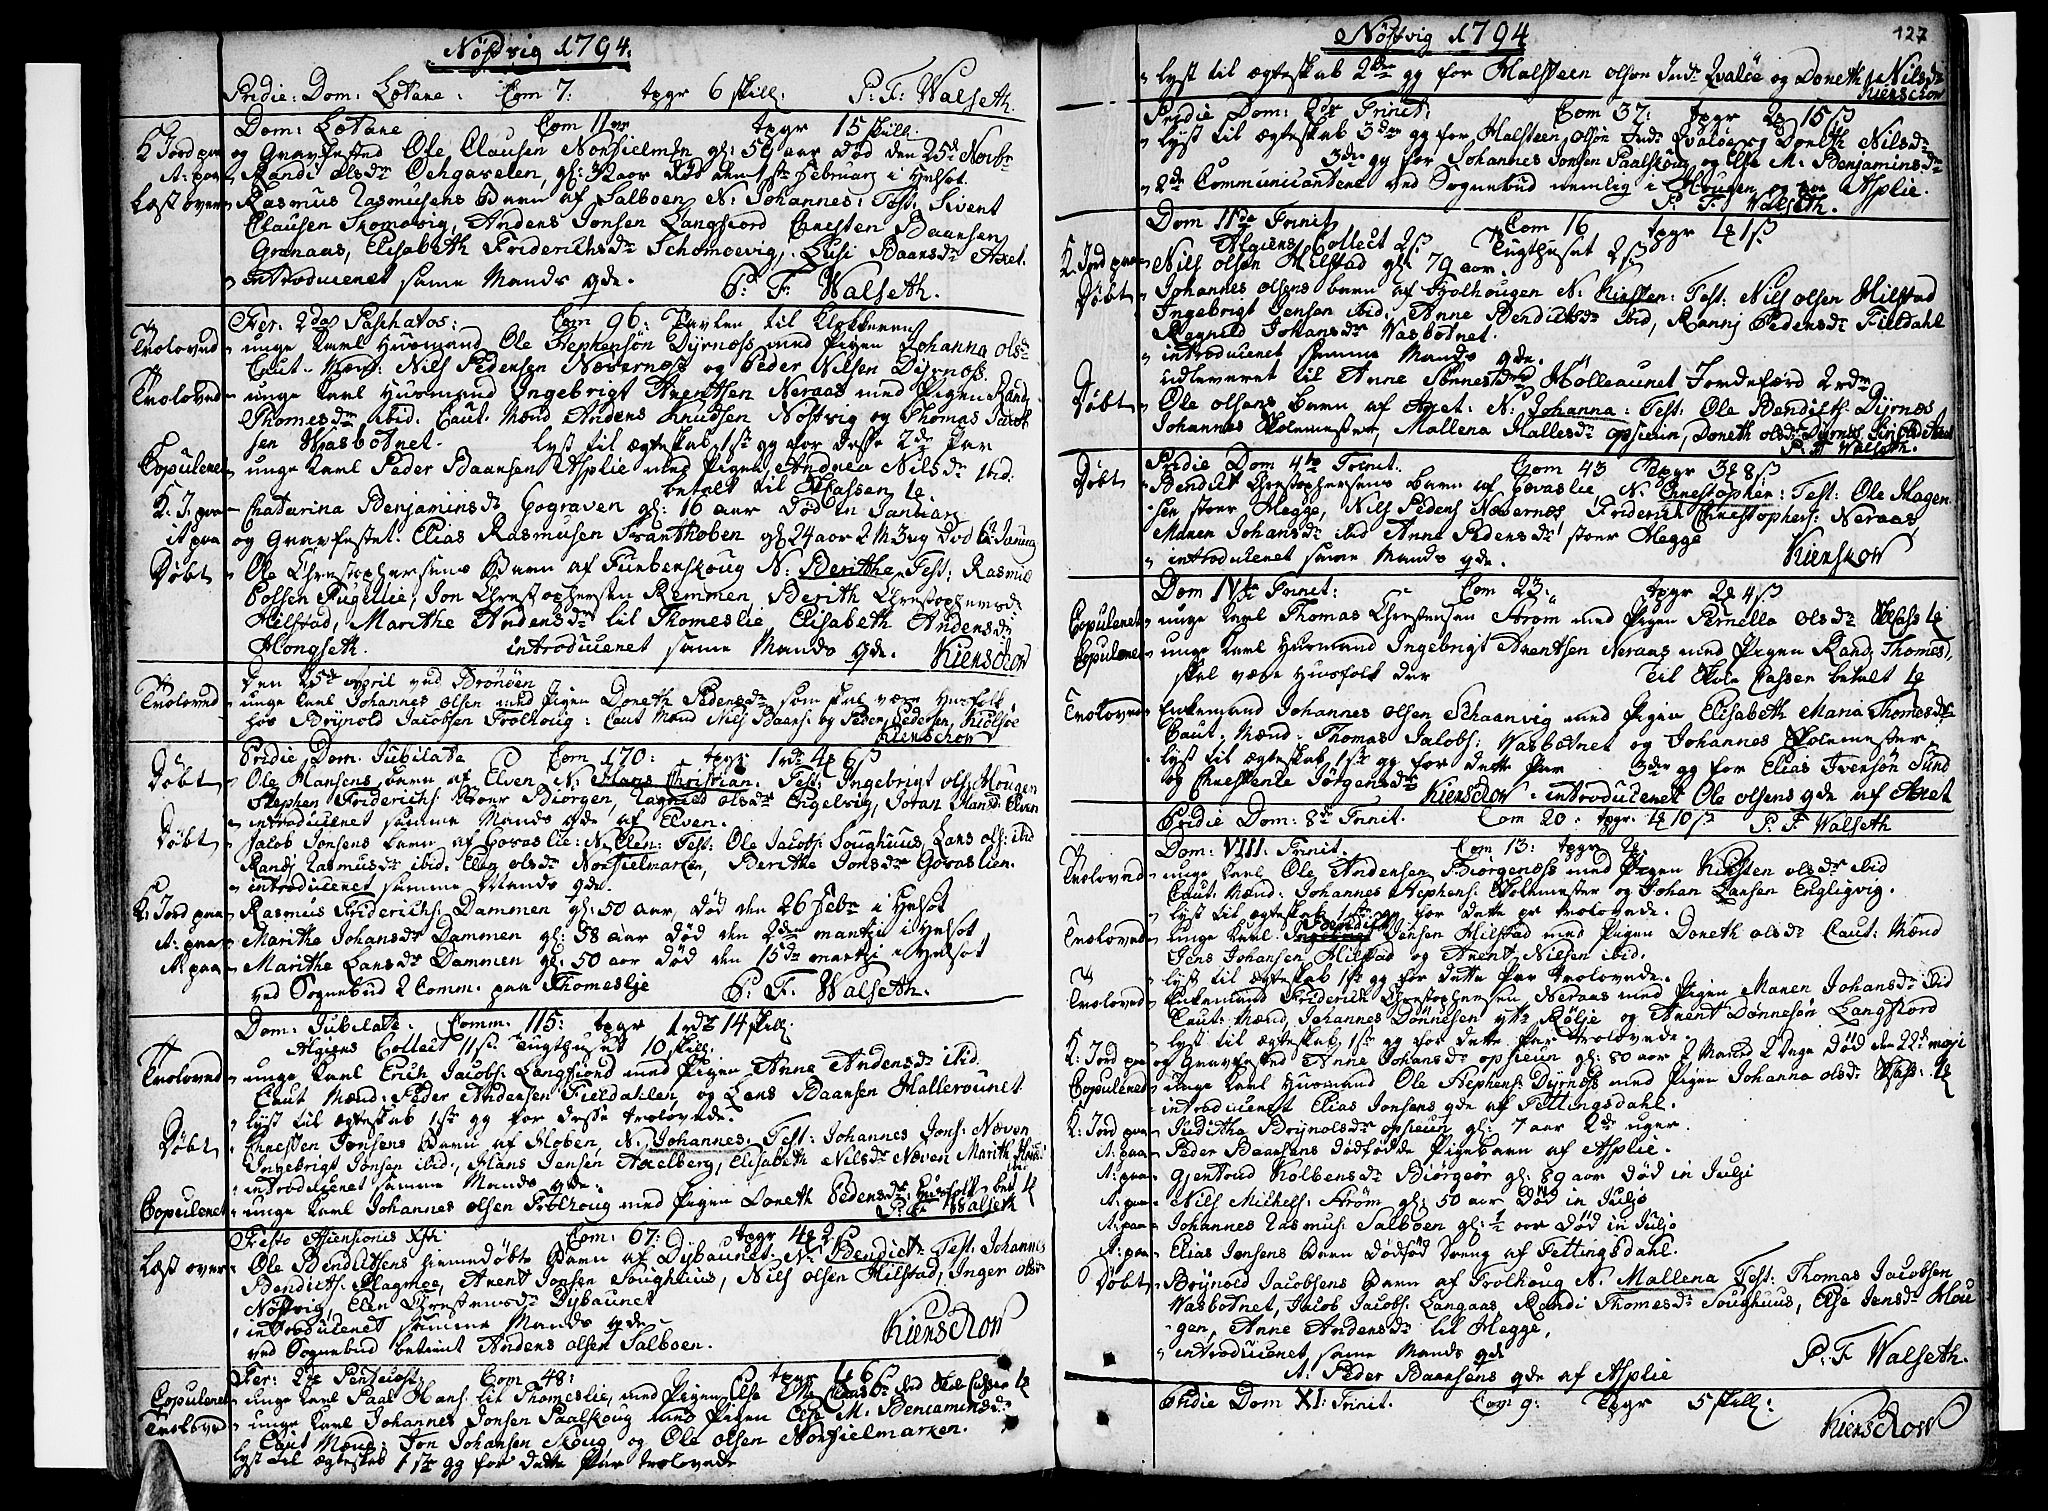 Nöstvig 1794.
Pridie: Dom: Lætare. Com 7: tpgr 6 skill: P: F: Walseth.
Dom: Lætare Com 11ve tpgr 15 skill:
K Jord paa og Gravfested Ole Clausen gl: 50 aar død den 25de Novbr
A: paa Randi olsdr gl: aar død den 1ste Februarj i Helsot.
Læst over Rasmus Rasmusens Barn af Salboen N: Johannes: Test: Sivert
Clausen Skomovig, Anders Jonsen Langfiord Christen Baansen
Granaas, Elisabeth Friderichsdr Schomoevig, Lusi Baansdr Axet.
introduceret samme Mands qde. P. F: Walseth.
Fer: 2da Paschatos: Com 96: Tavlen til Klokkeren
Troloved unge Karl Huusmand Ole Stephensön Dyrnæss med Pigen Johanna olsdr
Caut. Mænd: Nils Pedersen Næverness og Peder Nilsen Dyrnæs.
Troloved unge Karl Huusmand Ingebrigt Arentsen Neraas med Pigen Randj
Thomesdr ibid. Caut: Mænd Anders Knudsen Nöstvig og Thomas Jacob
sen Wasbotnet. lyst til ægteskab 1ste gg for desse 2de Par
Copuleret unge Karl Peder Baansen Asplie med Pigen Andrea Nilsdr ibid:
betalt til Cassen
K. J. paa Chatarina Benjaminsdr Gograven gl: 16 aar død in Januarj
it paa og Gravfestet. Elias Rasmusen gl 24 aar 2 M 3 ug død
Döbt Ole Christophersens Barn af Furbenskoug N: Berithe, Test: Rasmus
olsen Fugelie, Jon Christophersen Remmen, Berith Christophersdr
Hilstad, Marithe Andersdr lit Thomeslie, Elisabeth Andersdr
Hongseth. introduceret samme Mands qde. Kierschow
den 25de April ved Brönöen
Troloved unge Karl Johannes olsen med Pigen Doneth Pedersdr som skal være Huusfolk
hos Brynold Jacobsen Trolhoug: Caut Mænd Niels Baans: og Peder Pedersen,
Kierschow
Pridie Dom. Jubilate Com 170: tpgr 1 rdr 4 6 s
Döbt Ole Hansens barn af Elven N. Hans Christian. Test: Ingebrigt ols Hougen
Stephen Friderichs: Stoer Biörgen, Ragnild olsdr Engelvig, Joran Hansd: Elven
introduceret samme Mands qde af Elven.
Döbt Jacob Jonsens barn af Govaslie: N. Elen: Test: Ole Jacobs: Soughuus, Lars ols: ibid
Randj Rasmusdr ibid. Elen olsdr Norsielmarken, Berithe Jonsdr Govaslien.
introduceret samme Mands qde.
K: Jord paa Rasmus Friderichs: Dammen gl: 50 aar, død den 26 Febr i Helsot
A: paa Marithe Johansdr Dammen gl: 58 aar død den 2den martzi i Helsot
A: paa Marithe Larsdr Dammen gl: 50 aar død den 15de martzi i Helsot
ved Sognebud 2 Comm. paa Thomeslje P. F: Walseth.
Dom: Jubilate. Comm. 115: tpgr 1 rdr 14 skill.
Algiers Collect 11 s. Tugthuset 10 skill.
Troloved unge Karl Erich Jacobs: Langfiord med Pigen Anne Andersdr ibid.
Caut Mænd: Peder Andersen Fieldahlen og Lars Baansen Hallerounet
lyst til ægteskab 1ste gg for desse trolovede.
Döbt Christen Jonsens Barn af Floben, N. Johannes, Test: Johannes Jons: Næven
Ingebrigt Jonsen ibid., Hans Jensen Axelberg, Elisabeth Nilsdr Næven Marith
introduceret samme Mands qde.
Copuleret unge Karl Johannes olsen Trolhoug med Pigen Doneth Pedersdr: Huusfolk
P: F: Walseth
Festo Asiensionis Xsti Com: 67: tpgr 4 2 s
Læst over Ole Bendictsens hiemedøbte Barn af Dybaunet: N: Bendict: Test: Johannes
Bendicths: Slagnæs, Arent Jonsen Soughuus, Nils olsen Hilstad, Inger olsdr
Nöstvig, Elen Christensdr Dybaunet
introduceret samme Mands qde. Kierschow
ved Sognebud betient Anders olsen Salboen.
Fer: 2da Pentecost. Com 48: tpgr
Copuleret unge Karl Paal Hans: lit Thomeslie, med Pigen Else
Trolovede unge Karl Johannes Jonsen Paalskoug med Pigen Else M. Benjaminsdr
Caut Mænd: Jon Johansen Skoug, og Ole olsen Norsielmarken.
lyst til ægteskab 1ste gg for dette Par trolovede
Nöstvig 1794 127
lyst til ægteskab 2den gg for Halsteen olsen Indr Qvalöe og Doneth Nilsdr
Kierschow
Pridie Dom: 2dr Trinit: Com 37: tpgr 15 s
lyst til ægteskab 3den gg for Halsteen olsön Indr Qvalöe og Doneth Nilsdr
3den gg for Johannes Jonsen Paalskoug og Else M. Benjaminsdr
2de Communicantere ved Sognebud nemlig i Hougen og paa Asplie.
P: F: Walseth.
Dom 11de Trinit Com 16 tpgr 1 1 s
Algiers Collect 2 s Tugthuset 2 s
K. Jord paa Nils olsen Hilstad gl: 79 aar
Döbt Johannes olsens barn af Holhougen N: Kirsten: Test: Nils olsen Hilstad
Ingebrigt Jensen ibid: Anne Bendictsdr ibid, Rannj Pedersdr Fieldahl
Ragnild Johansdr Wasbotnet.
introduceret samme Mands qde.
udleveret til Anne Hölleaunet Jordeferd 2 rdr
Döbt Ole olsens barn af Axet: N: Johanna: Test: Ole Bendicth: Dyrnæs
Johannes Skolemester, Mallena Hallesdr opsieiin, Doneth olsdr Dyrnes,
P: F Walseth.
Pridie Dom 4te Trinit. Com 43 tpgr 3 8 s
Döbt Bendict Christophersens barn af Govaslie N: Christopher: Test: Ole Hagen
sen stoer Hegge, Nils Peders Næverness Friderich Christophers: Neraas
Maren Johansdr ibid Anne Pedersdr stoer Hegge
introduceret samme Mands qde. Kierschow
Dom IVte Trinit: Com 23: tpgr 2 4 s
Copuleret unge Karl Thomas Christensen Ström med Pigen Pernella olsdr
Copuleret unge Karl Huusmand Ingebrigt Arentsen Neraas med Pigen Randj Thomesd,
skal være Huusfolk der Til Skole Cassen betalt
Trolovet Enkemand Johannes olsen Schaanvig med Pigen Elisabeth Maria Thomesdr
Caut: Mænd: Thomas Jacobs: Wasbotnet og Johannes Skolemester.
lyst til ægteskab 1ste gg for dette Par 3den gg for Elias Iversön Sund
og Christente Jörgensdr Kierschow introduceret Ole olsens qde af Axet
Pridie Dom: 8de Trinit. Com 20: tpgr. 10 s P. F. Walseth
Dom: VIII: Trinit. Com 13: tpgr 2
Trolovede unge Karl Ole Andersen Biörgenæs med Pigen Kirsten olsdr ibid
Caut: Mænd: Johannes Stephens: Skolemester og Johan Larsen Engligvig.
lyst til ægteskab 1ste gg for dette pr trolovede.
Trolovede unge Karl Jensen Hilstad med Pigen Doneth olsdr Caut: Mænd
Jens Johansen Hilstad og Arent Nilsen ibid.
lyst til ægteskab 1ste gg for dette Par trolovede.
Trolovede Enkemand Friderich Christophersen Neraas med Pigen Maren Johansdr ibid
Caut: Mænd, Johannes Dönnesen ytr: Rölje og Arent Dönnesön Langfiord
lyst til ægteskab 1ste gg for dette Par trolovede
K: Jord paa og Gravfested Anne Johansdr opsieun gl: 80 aar 2 Maaned 2 uge død den 22de maji
Copuleret unge Karl Huusmand Ole Stephens: Dyrnæss med Pigen Johanna olsdr
introduceret Elias Jonsens qde af Fettingsdahl.
K: Jord paa Juditha Brynolsdr opsieun gl: 7 aar 2de uger.
A: paa Peder Baansens dødfødde Pigebarn af Asplie.
A: paa Gjertrud Kolbensdr Biörgeör gl: 89 aar død in Julji
A: paa Nils Mikkels: Ström gl: 50 aar død in Julji
A: paa Johannes Rasmus: Salboen gl: 1/2 aar død in Julji
A: paa Elias Jonsens Barn dødfød Dreng af Fettingsdahl.
Döbt Brynold Jacobsens Barn af Trolhoug N. Mallena Test: Thomas Jacobsen
Wasbotnet, Jacob Jacobs: Langaas, Randi Thomesdr Soughuus, Else Jensdr Hou
gen, Anne Andersdr lit Hegge,
introduceret samme Mands qde P: F Walseth.
A: Peder Baansens qde af Asplie
Pridie Dom XI: Trinit. Com 9: tpgr 5 skill:
Kierschow